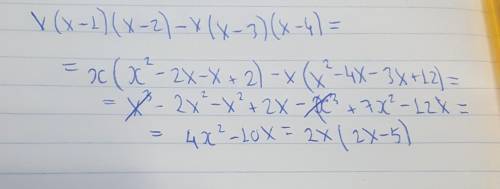 x(x-1)(x-2)-x(x-3)(x-4)=
=x(x²-2x-x+2)-x(x²-4x-3x+12)=
=x³-2x²-x²+2x-x³+7x²-12x=
=4x²-10x=2x(2x-5)